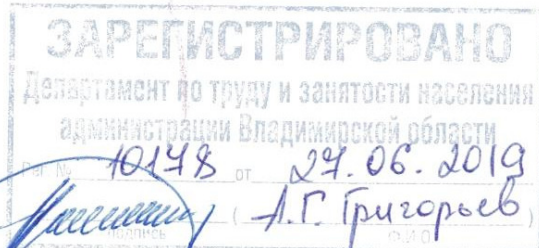 ЗАРЕГИСТРИРОВАНО
Департамент по труду и занятости населения
администрации Владимирской области
Рег. № 10178 от 27.06.2019
(А.Г. Григорьев)
подпись Ф.И.О.